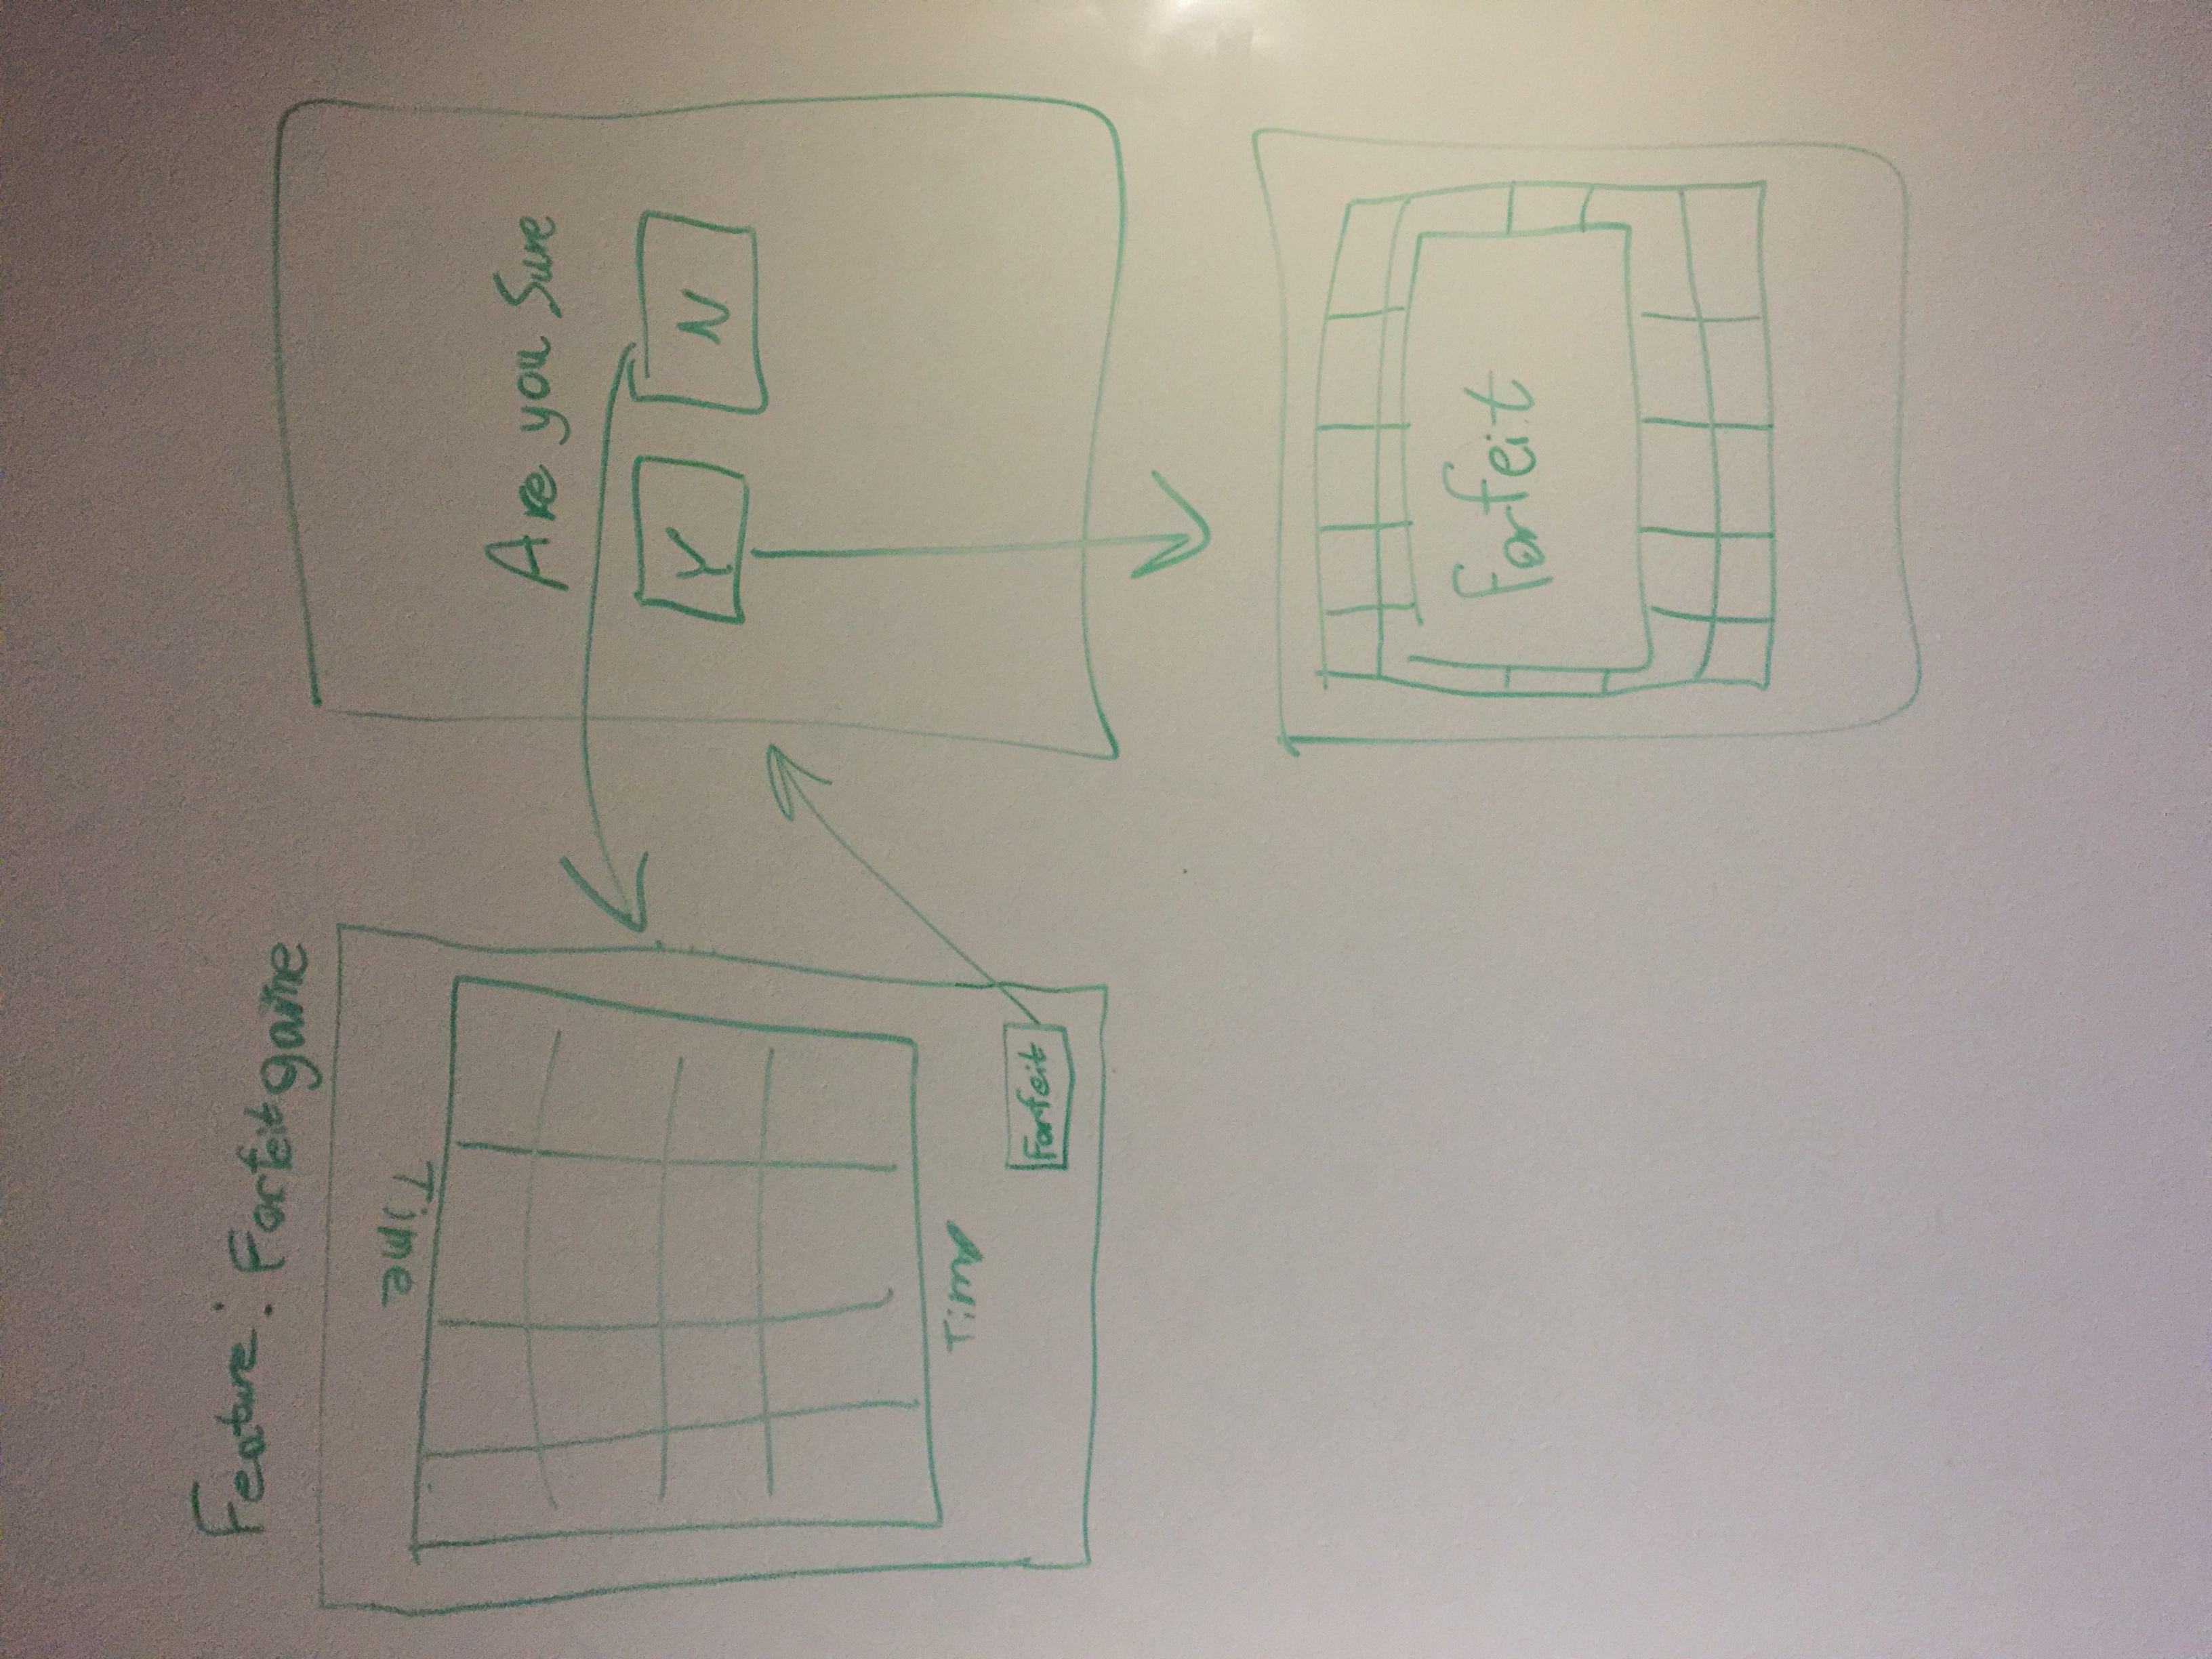 Feature: Forfeit game
Time
Time
Forfeit
Are you Sure
Y
N
Forfeit